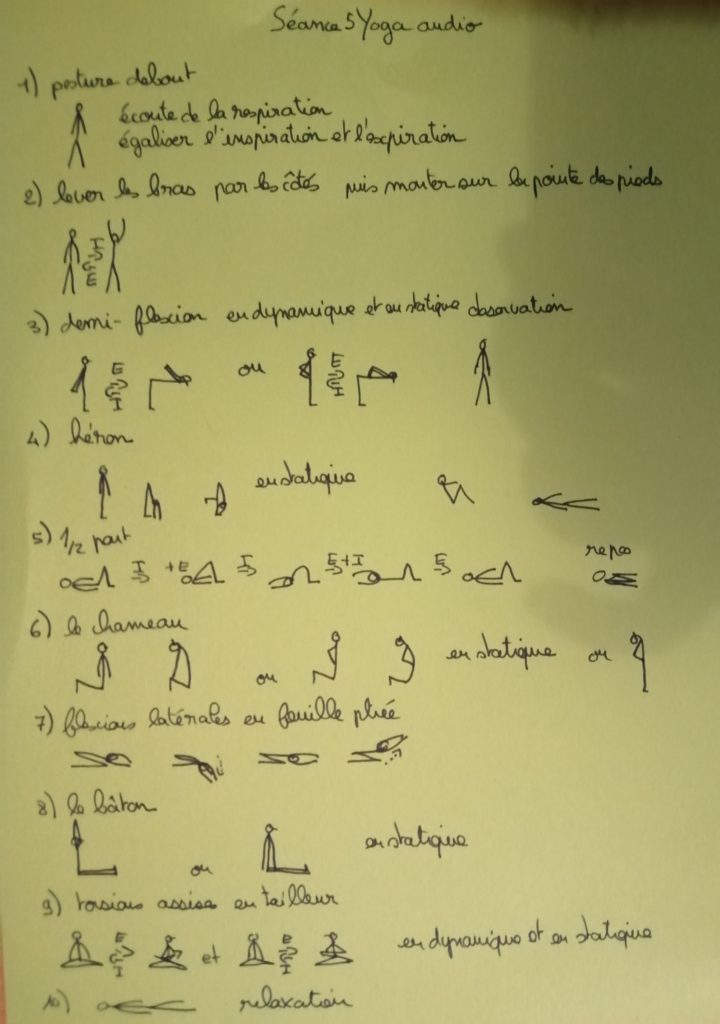 Séance 5 Yoga audio
1) posture debout
écoute de la respiration
égaliser l'inspiration et l'expiration
2) lever les bras par les côtés puis monter sur la pointe des pieds
I
E
3) demi-flexion en dynamique et en statique observation
E ou E
I I
4) héron
en statique
5) 1/2 pont
I +E I E+I E repos
6) le chameau
ou en statique ou
7) flexions latérales en feuille pliée
8) le bâton
ou en statique
9) torsions assises en tailleur
E et E en dynamique et en statique
I I
10) relaxation